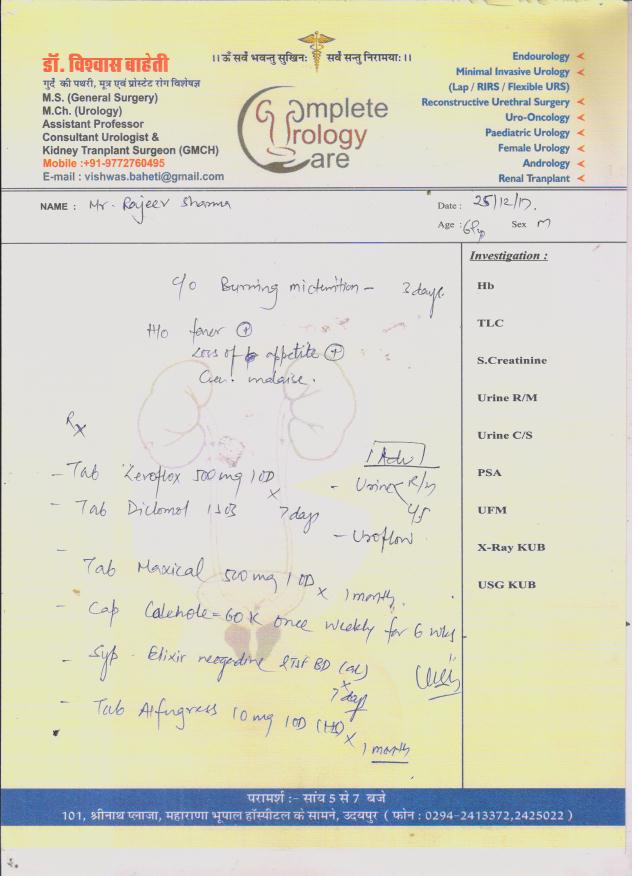 ।। ॐ सर्वे भवन्तु सुखिनः सर्वे सन्तु निरामयाः ।।
डॉ. विश्वास बाहेती
गुर्दे की पथरी, मूत्र एवं प्रोस्टेट रोग विशेषज्ञ
M.S. (General Surgery)
M.Ch. (Urology)
Assistant Professor
Consultant Urologist &
Kidney Tranplant Surgeon (GMCH)
Mobile :+91-9772760495
E-mail : vishwas.baheti@gmail.com
Complete
Urology
Care
Endourology
Minimal Invasive Urology
(Lap / RIRS / Flexible URS)
Reconstructive Urethral Surgery
Uro-Oncology
Paediatric Urology
Female Urology
Andrology
Renal Tranplant
NAME : Mr. Rajeev Sharma
Date : 25/12/17
Age : Sex M
C/o Burning micturition - 3 days
H/o fever (+)
Loss of appetite (+)
Gen. malaise.
Rx
- Tab Zeroflox 500 mg 1 OD
- Tab Diclomol 1 SOS
x 7 days
Adv
- Urine R/M
C/S
- Uroflow
- Tab Maxical 500 mg 1 OD x 1 month.
- Cap Calehole - 60K once weekly for 6 wks
- Syp. Elixir neogadine 2TSF BD x 7 days
- Tab Alfugress 10 mg 1 OD (HS) x 1 month
Investigation :
Hb
TLC
S.Creatinine
Urine R/M
Urine C/S
PSA
UFM
X-Ray KUB
USG KUB
परामर्श :- सांय 5 से 7 बजे
101, श्रीनाथ प्लाजा, महाराणा भूपाल हॉस्पीटल के सामने, उदयपुर ( फोन : 0294-2413372,2425022 )